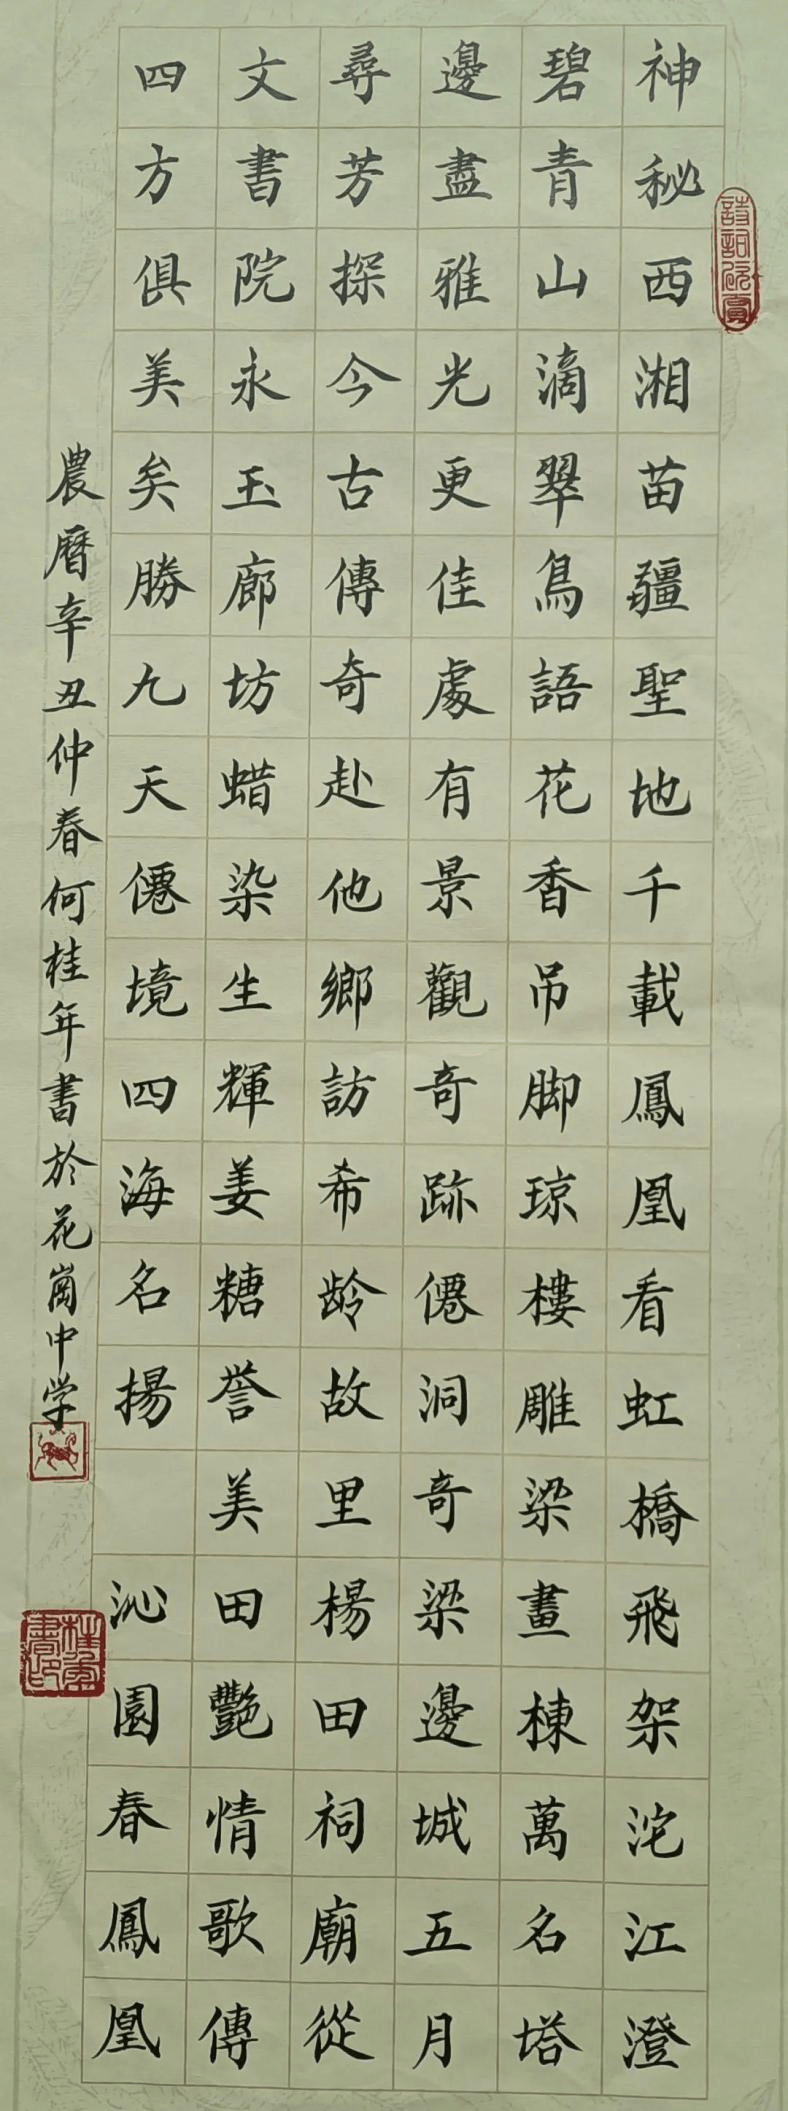 神秘西湘苗疆聖地千載鳳凰看虹橋飛架沱江澄
碧青山滴翠鳥語花香吊脚琼樓雕梁畫棟萬名塔
邊盡雅光更佳處有景觀奇跡僊洞奇梁邊城五月
尋芳探今古傳奇赴他鄉訪希龄故里楊田祠廟從
文書院永玉廊坊蜡染生輝姜糖誉美田艷情歌傳
四方俱美矣勝九天僊境四海名揚 沁園春鳳凰
農曆辛丑仲春何桂年書於花崗中学
桂年書印